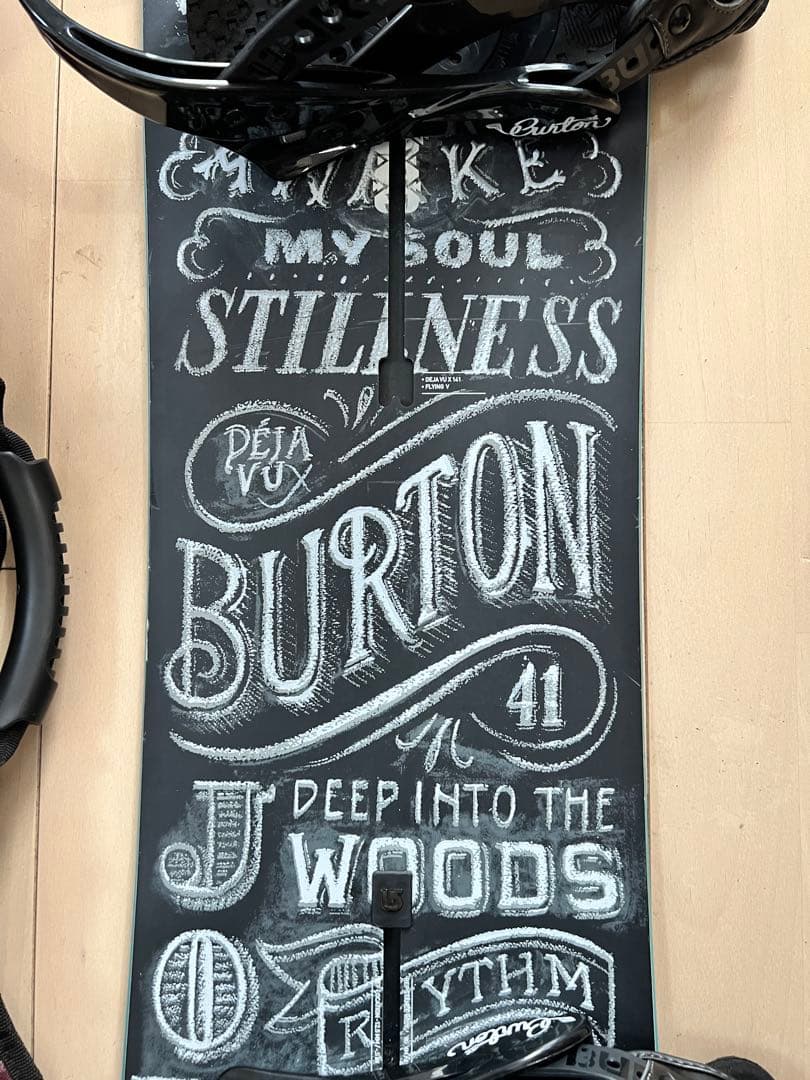 Burton
AWAKE
MY SOUL
STILLNESS
• DEJA VU X 141
• FLYING V
DÉJA
VU X
BURTON
41
J
DEEP INTO THE
WOODS
O
RYTHM
Burton